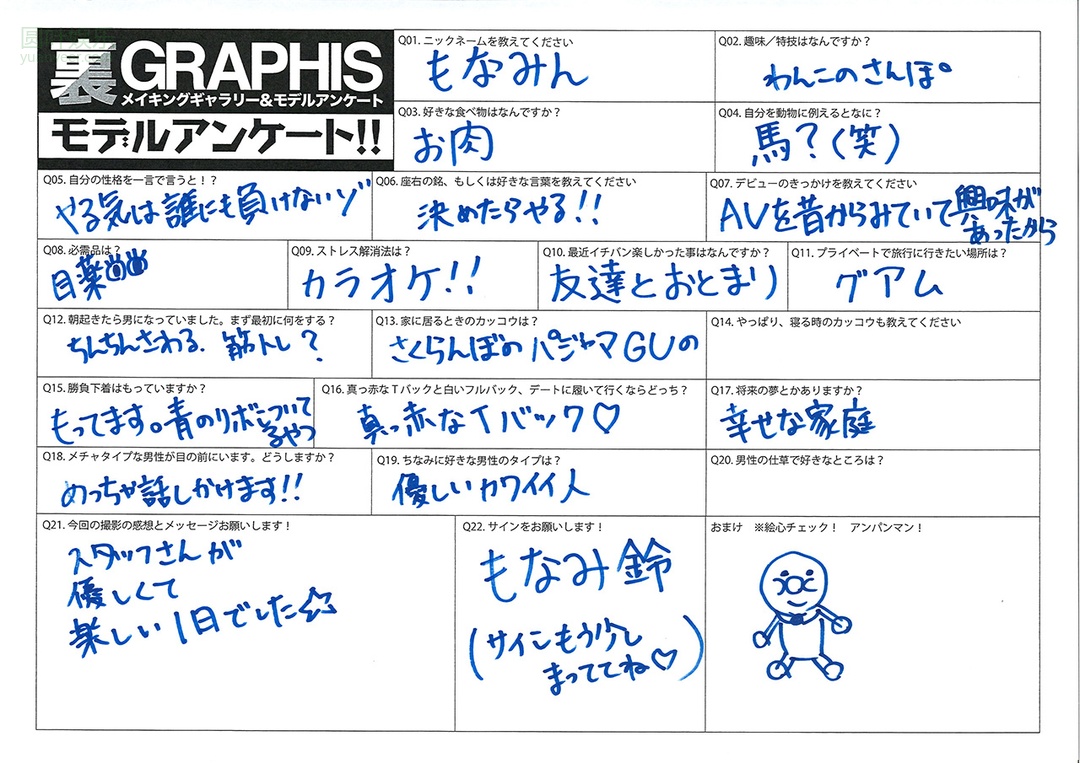 裏GRAPHIS
メイキングギャラリー&モデルアンケート
モデルアンケート!!
Q01. ニックネームを教えてください
もなみん
Q02. 趣味／特技はなんですか？
わんこのさんぽ。
Q03. 好きな食べ物はなんですか？
お肉
Q04. 自分を動物に例えるとなに？
馬？(笑)
Q05. 自分の性格を一言で言うと！？
やる気は誰にも負けないゾ
Q06. 座右の銘、もしくは好きな言葉を教えてください
決めたらやる!!
Q07. デビューのきっかけを教えてください
AVを昔からみていて興味が
あったから
Q08. 必需品は？
目薬
Q09. ストレス解消法は？
カラオケ!!
Q10. 最近イチバン楽しかった事はなんですか？
友達とおとまり
Q11. プライベートで旅行に行きたい場所は？
グアム
Q12. 朝起きたら男になっていました。まず最初に何をする？
ちんちんさわる、筋トレ？
Q13. 家に居るときのカッコウは？
さくらんぼのパジャマGUの
Q14. やっぱり、寝る時のカッコウも教えてください
Q15. 勝負下着はもっていますか？
もってます。青のリボンついて
るやつ
Q16. 真っ赤なTバックと白いフルバック、デートに履いて行くならどっち？
真っ赤なTバック♡
Q17. 将来の夢とかありますか？
幸せな家庭
Q18. メチャタイプな男性が目の前にいます。どうしますか？
めっちゃ話しかけます!!
Q19. ちなみに好きな男性のタイプは？
優しいカワイイ人
Q20. 男性の仕草で好きなところは？
Q21. 今回の撮影の感想とメッセージお願いします！
スタッフさんが
優しくて
楽しい1日でした☆
Q22. サインをお願いします！
もなみ鈴
(サインもう少し
まっててね♡)
おまけ ※絵心チェック！ アンパンマン！